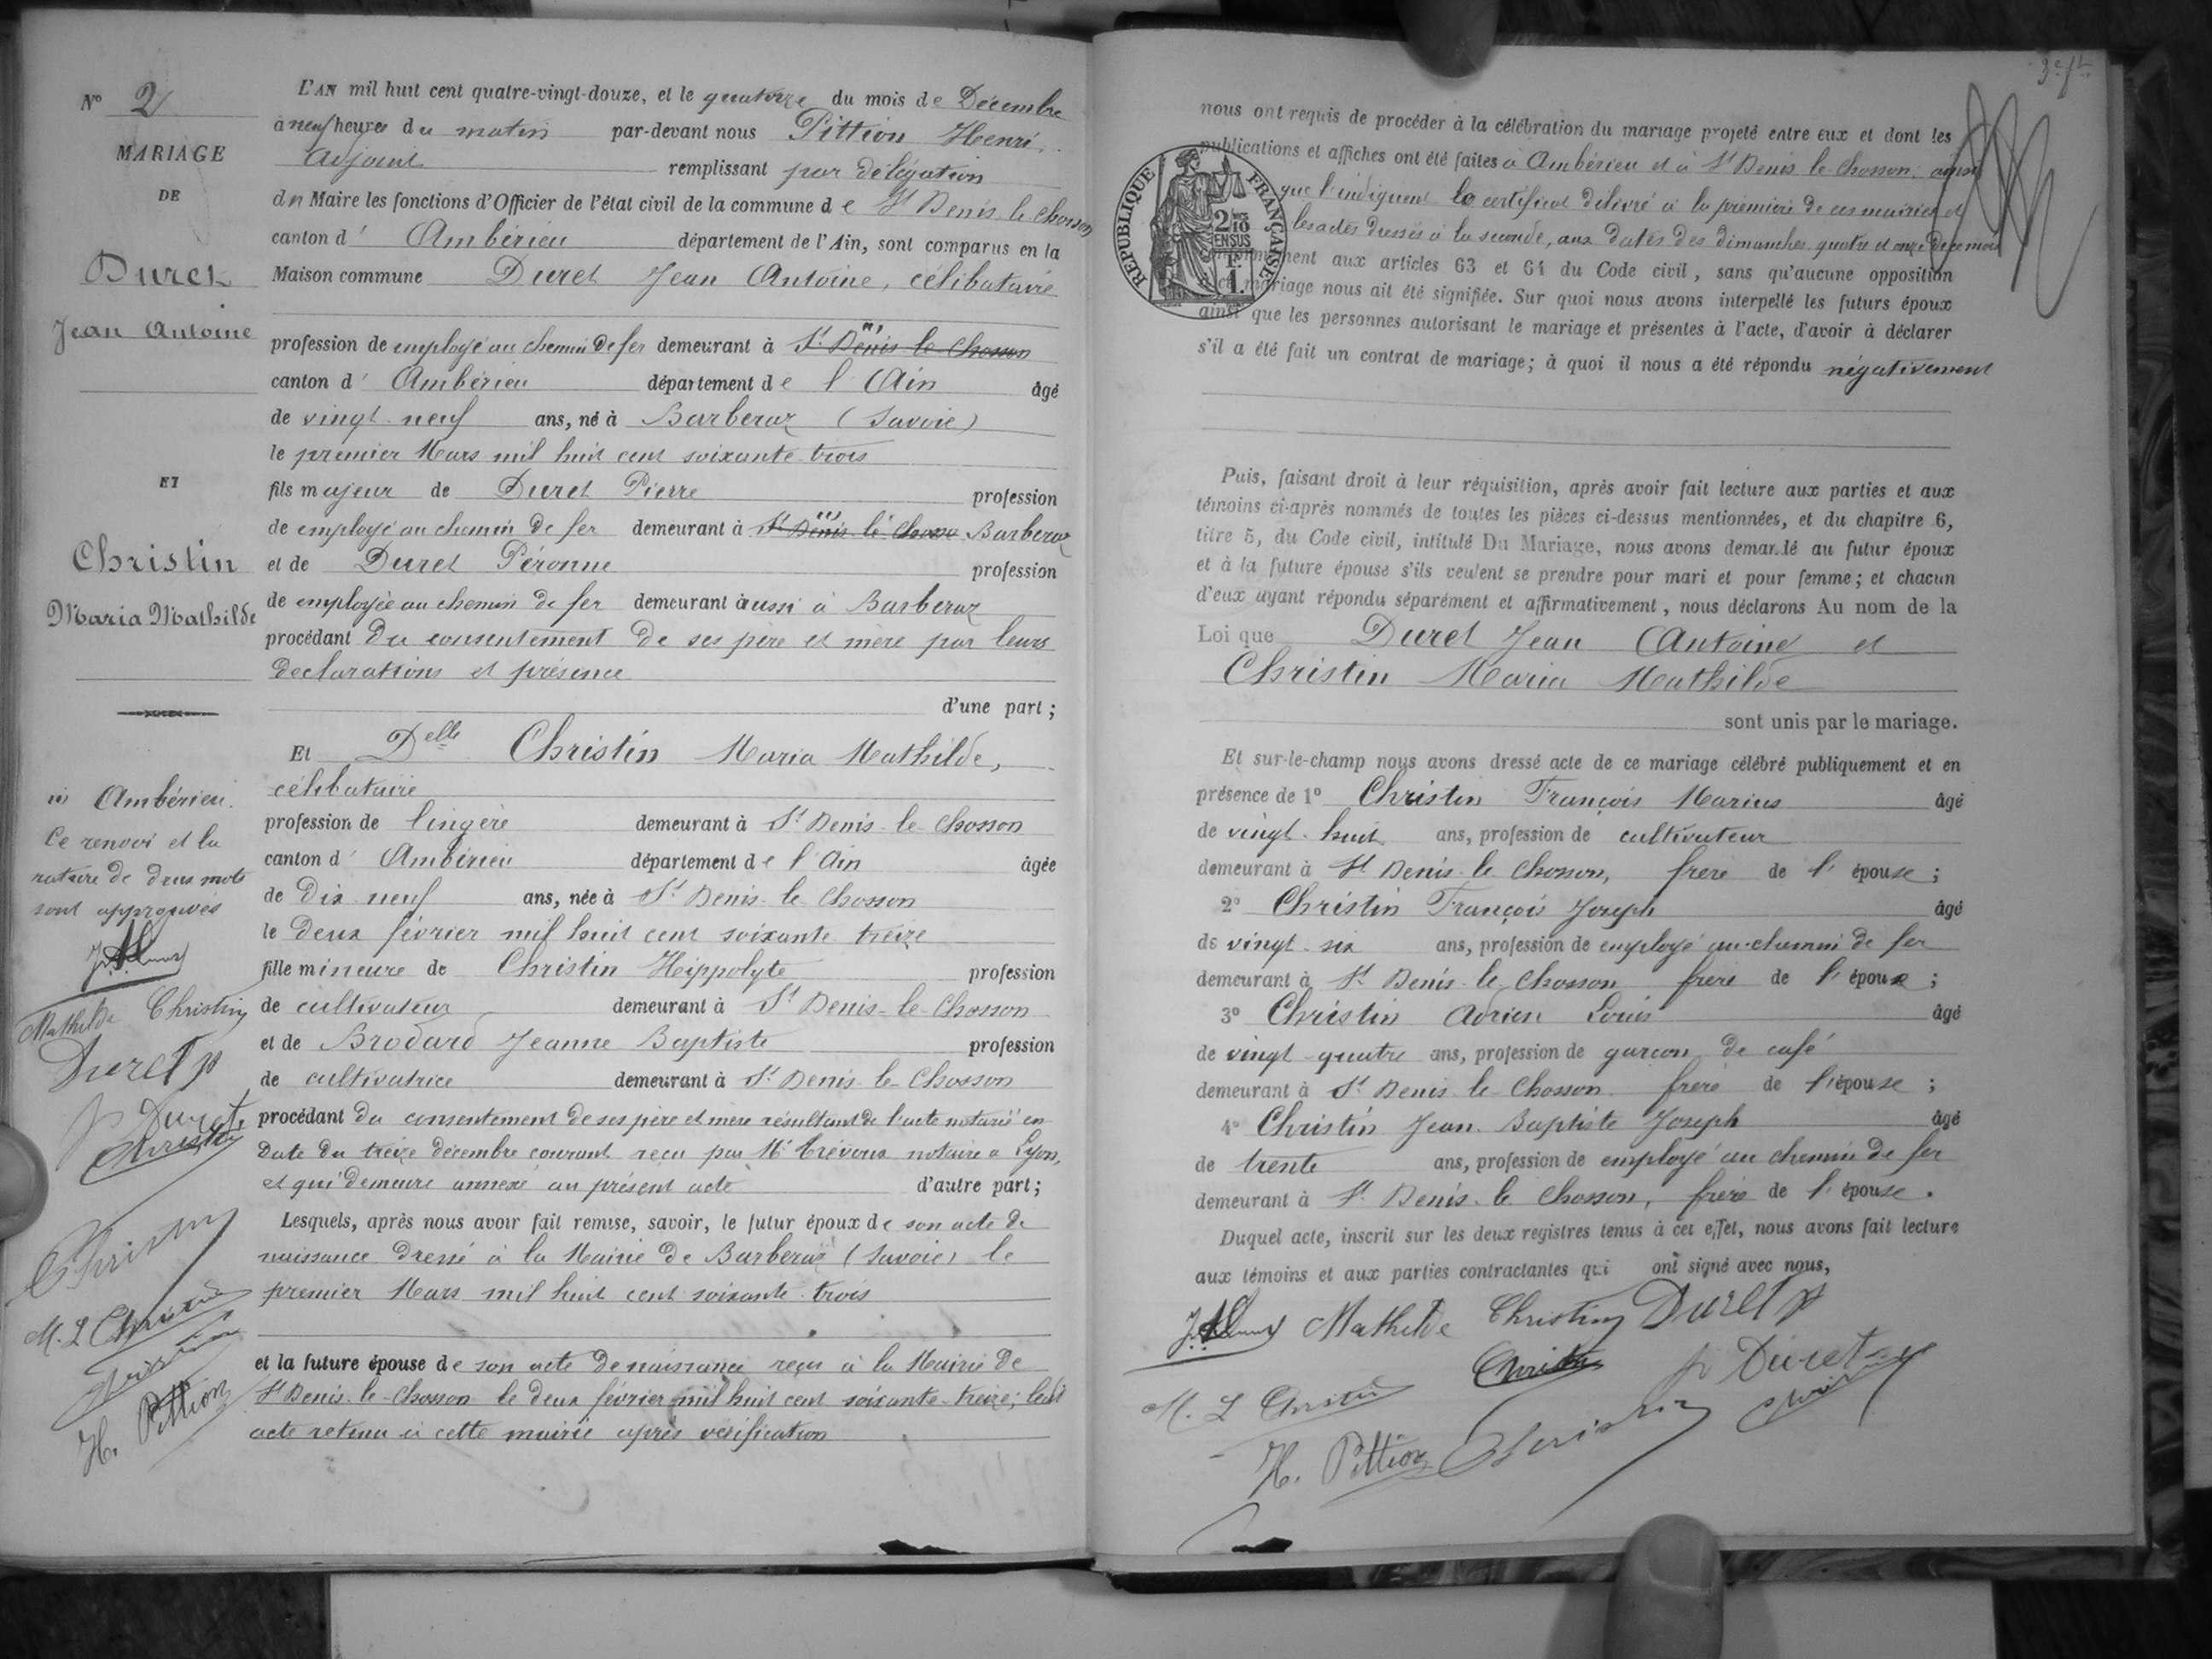 N° 2
MARIAGE
DE
Duret
Jean Antoine
ET
Christin
Maria Mathilde
Ambérieu.
Ce renvoi et la
rature de deux mots
sont approuvés
Mathilde Christin
Duret p
p Duret
Christin
Christin
M. L Christin
Christin
H. Pittion
L'AN mil huit cent quatre-vingt-douze, et le quatorze du mois de Décembre
à neuf heures du matin par-devant nous Pittion Henri,
adjoint remplissant par délégation
du Maire les fonctions d'Officier de l'état civil de la commune de St Denis le Chosson
canton d' Ambérieu département de l'Ain, sont comparus en la
Maison commune Duret Jean Antoine, célibataire
profession de employé au chemin de fer demeurant à St Denis le Chosson
canton d' Ambérieu département de l'Ain âgé
de vingt-neuf ans, né à Barberaz (Savoie)
le premier Mars mil huit cent soixante-trois
fils majeur de Duret Pierre profession
de employé au chemin de fer demeurant à St Denis le Chosso Barberaz
et de Duret Péronne profession
de employée au chemin de fer demeurant aussi à Barberaz
procédant du consentement de ses père et mère par leurs
déclarations et présence
d'une part;
Et Delle Christin Maria Mathilde,
célibataire
profession de lingère demeurant à St Denis-le-Chosson
canton d' Ambérieu département de l'Ain âgée
de dix-neuf ans, née à St Denis-le-Chosson
le deux février mil huit cent soixante treize
fille mineure de Christin Hippolyte profession
de cultivateur demeurant à St Denis-le-Chosson
et de Brodard Jeanne Baptiste profession
de cultivatrice demeurant à St Denis-le-Chosson
procédant du consentement de ses père et mère résultant de l'acte notarié en
date du treize décembre courant reçu par Me notaire à Lyon,
et qui demeure annexé au présent acte d'autre part;
Lesquels, après nous avoir fait remise, savoir, le futur époux de son acte de
naissance dressé à la Mairie de Barberaz (Savoie) le
premier Mars mil huit cent soixante-trois
et la future épouse de son acte de naissance reçu à la Mairie de
St Denis-le-Chosson le deux février mil huit cent soixante-treize; ledit
acte retenu à cette mairie après vérification
nous ont requis de procéder à la célébration du mariage projeté entre eux et dont les
publications et affiches ont été faites à Ambérieu et à St Denis-le-Chosson, ainsi
que l'indiquent le certificat délivré à la première de ces mairies et
les actes dressés à la seconde, aux dates des dimanches quatre et onze de ce mois
conformément aux articles 63 et 64 du Code civil, sans qu'aucune opposition
à ce mariage nous ait été signifiée. Sur quoi nous avons interpellé les futurs époux
ainsi que les personnes autorisant le mariage et présentes à l'acte, d'avoir à déclarer
s'il a été fait un contrat de mariage; à quoi il nous a été répondu négativement
RÉPUBLIQUE FRANÇAISE
2/10
EN SUS
1 F.
Puis, faisant droit à leur réquisition, après avoir fait lecture aux parties et aux
témoins ci-après nommés de toutes les pièces ci-dessus mentionnées, et du chapitre 6,
titre 5, du Code civil, intitulé Du Mariage, nous avons demandé au futur époux
et à la future épouse s'ils veulent se prendre pour mari et pour femme; et chacun
d'eux ayant répondu séparément et affirmativement, nous déclarons Au nom de la
Loi que Duret Jean Antoine et
Christin Maria Mathilde
sont unis par le mariage.
Et sur-le-champ nous avons dressé acte de ce mariage célébré publiquement et en
présence de 1° Christin François Marius âgé
de vingt-huit ans, profession de cultivateur
demeurant à St Denis le Chosson, frère de l'épouse;
2° Christin François Joseph âgé
de vingt-six ans, profession de employé au chemin de fer
demeurant à St Denis-le-Chosson frère de l'épouse;
3° Christin Adrien Louis âgé
de vingt-quatre ans, profession de garçon de café
demeurant à St Denis-le-Chosson frère de l'épouse;
4° Christin Jean-Baptiste Joseph âgé
de trente ans, profession de employé au chemin de fer
demeurant à St Denis-le-Chosson, frère de l'épouse.
Duquel acte, inscrit sur les deux registres tenus à cet effet, nous avons fait lecture
aux témoins et aux parties contractantes qui ont signé avec nous,
Mathilde Christin Duret p
M. L Christin Christin p Duret
H. Pittion Christin Christin